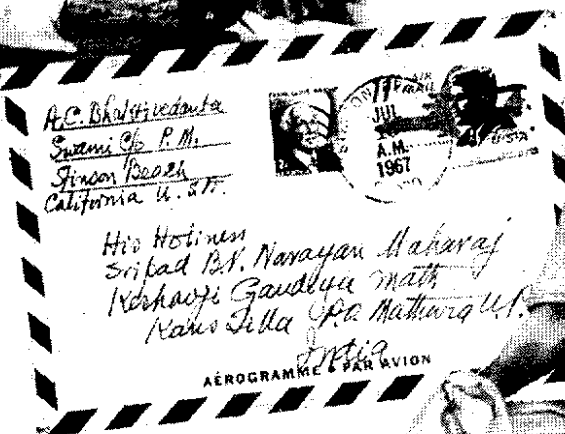 A.C. Bhaktivedanta
Swami C/o P.M.
Stinson Beach
California U.S.A.
AIR
MAIL
JUL
A.M.
1967
His Holiness
Sripad B.V. Narayan Maharaj
Keshavji Gaudiya Math
Kans Tilla P.O. Mathura U.P.
India
AÉROGRAMME • PAR AVION